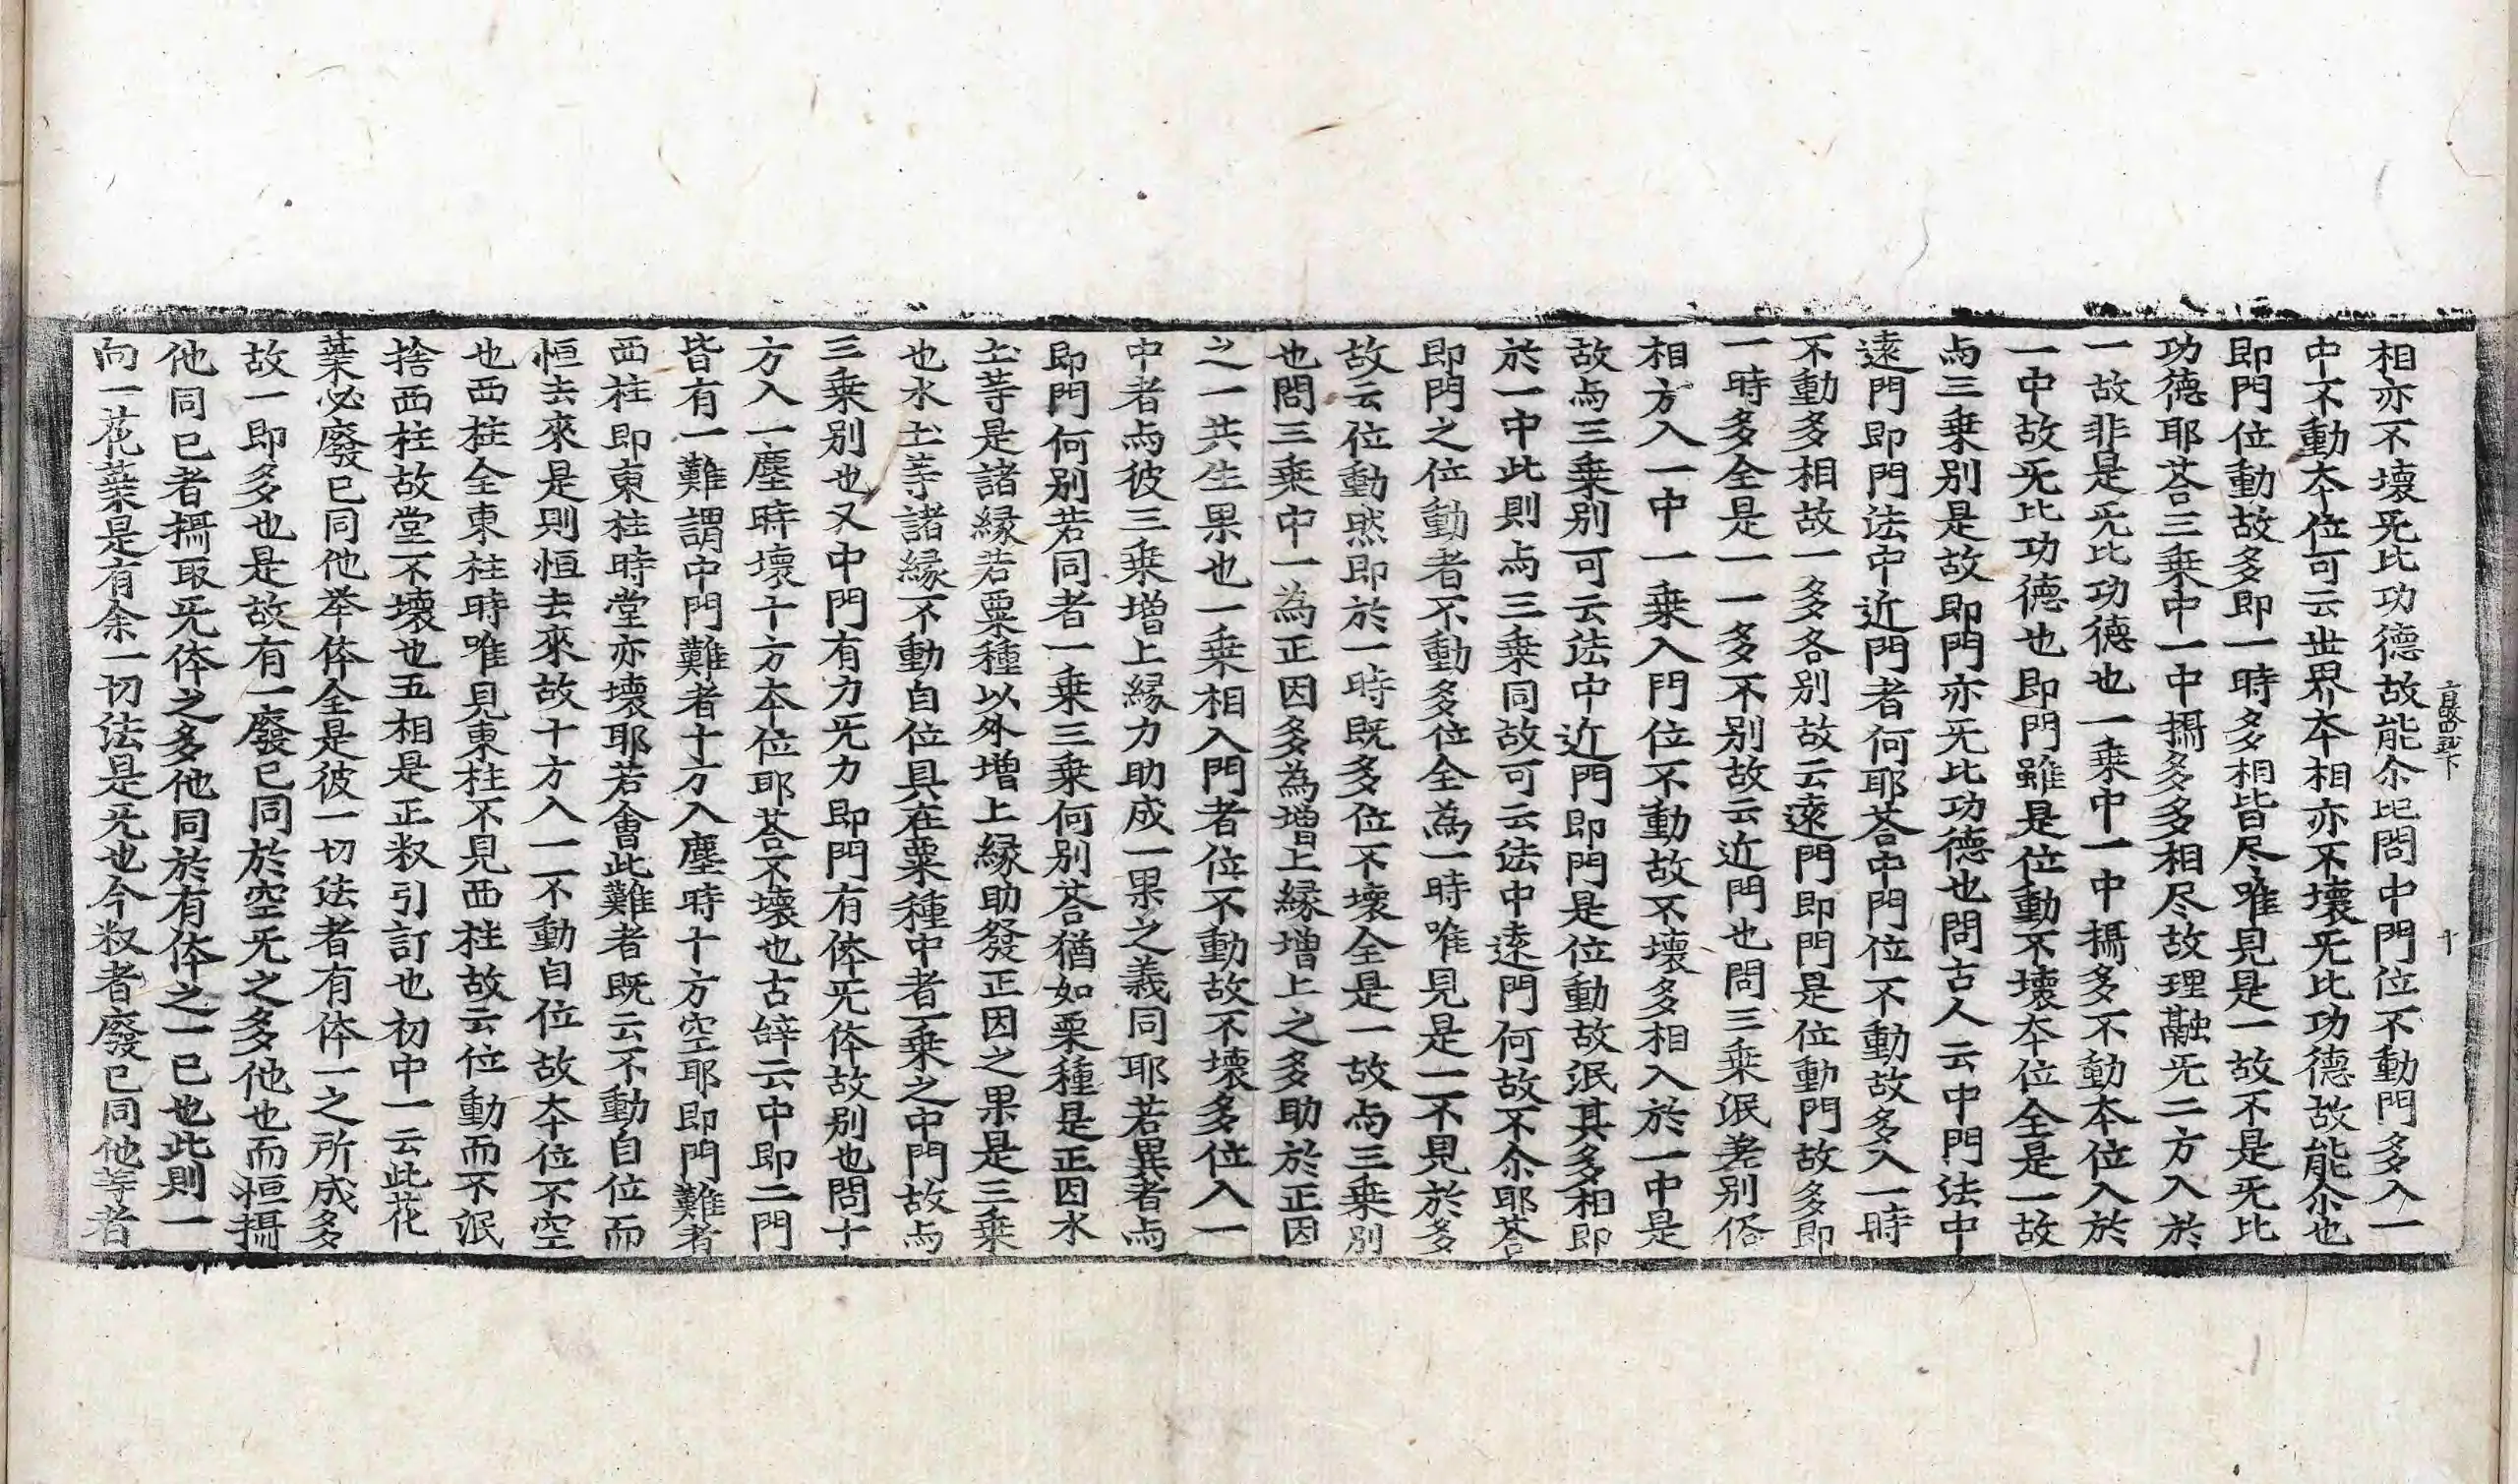 相亦不壞旡比功德故能尒㐀問中門位不動門多入一
中不動本位可云世界本相亦不壞旡比功德故能尒也
即門位動故多即一時多相皆尽唯見是一故不是旡比
功德耶荅三乗中一中攝多多相尽故理融旡二方入於
一故非是旡比功德也一乗中一中攝多不動本位入於
一中故旡比功德也即門雖是位動不壞本位全是一故
与三乗别是故即門亦旡比功德也問古人云中門法中
遠門即門法中近門者何耶荅中門位不動故多入一時
不動多相故一多各别故云遠門即門是位動門故多即
一時多全是一一一多不别故云近門也問三乗泯差别俗
相方入一中一乗入門位不動故不壞多相入於一中是
故与三乗别可云法中近門即門是位動故泯其多相即
於一中此則与三乗同故可云法中遠門何故不尒耶荅
即門之位動者不動多位全為一時唯見是一不見於多
故云位動㷼即於一時既多位不壞全是一故与三乗別
也問三乗中一為正因多為增上縁增上之多助於正因
之一共生果也一乗相入門者位不動故不壞多位入一
中者与彼三乗增上縁力助成一果之義同耶若異者与
即門何别若同者一乗三乗何别荅猶如粟種是正因水
土䓁是諸縁若粟種以外增上縁助發正因之果是三乗
也水土䓁諸縁不動自位具在粟種中者一乗之中門故与
三乗别也又中門有力旡力即門有体旡体故别也問十
方入一塵時壞十方本位耶荅不壞也古辝云中即二門
皆有一難謂中門難者十方入塵時十方空耶即門難者
西柱即東柱時堂亦壞耶若會此難者既云不動自位而
恒去來是則恒去來故十方入一不動自位故本位不空
也西柱全東柱時唯見東柱不見西柱故云位動而不泯
捨西柱故堂不壞也五相是正釈引訂也初中一云此花
葉必廢已同他举体全是彼一切法者有体一之所成多
故一即多也是故有一廢已同於空旡之多他也而恒攝
他同已者攝取旡体之多他同於有体之一已也此則一
向一花葉是有余一切法是旡也今釈者廢已同他等者